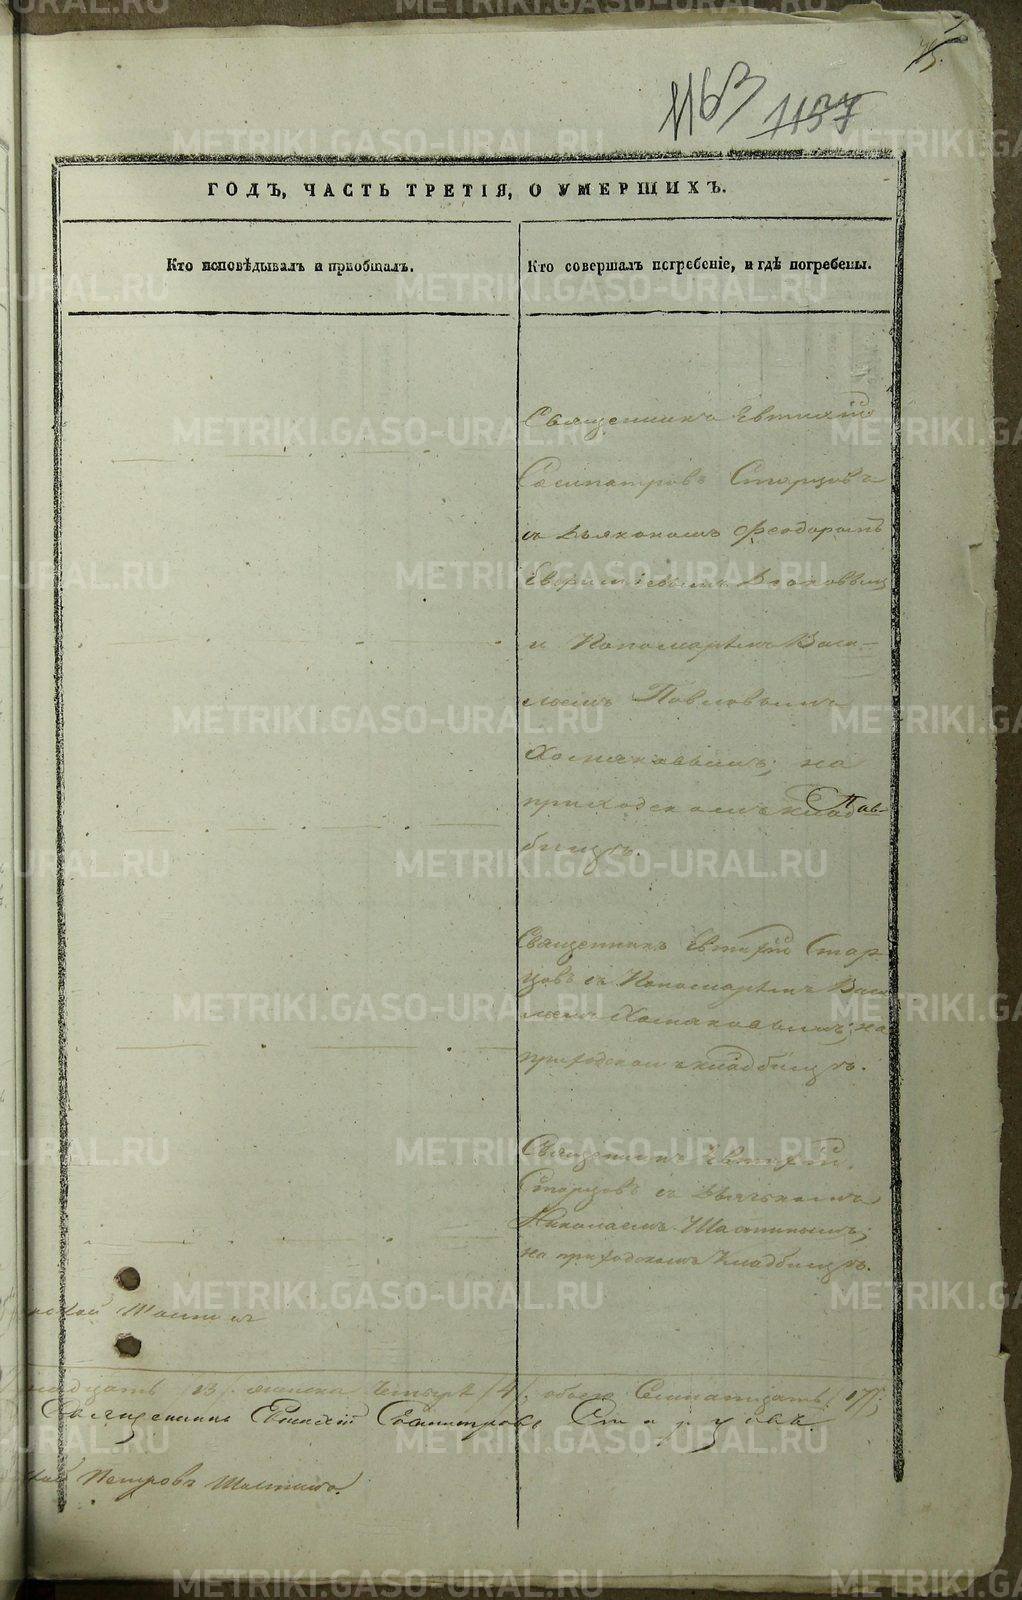 1163 1157
ГОДЪ, ЧАСТЬ ТРЕТІЯ, О УМЕРШИХЪ.
Кто исповѣдывалъ и пріобщалъ.
Кто совершалъ погребеніе, и гдѣ погребены.
Священникъ Евтихій
Сосипатровъ Старцовъ
съ Дьякономъ Феодоромъ
и Пономаремъ Васи-
льемъ Павловымъ
Хомяковымъ; на
приходскомъ клад
бищѣ.
Священникъ Евтихій Стар
цовъ съ Пономаремъ Васи
льемъ Хомяковымъ; на
приходскомъ кладбищѣ.
Священникъ Евтихій
Старцовъ съ Дьячкомъ
Николаемъ
на приходскомъ кладбищѣ.
надцать /13/. женска четыре /4/. обоего Семнатцать /17/;
Священникъ Евтихій Сосипатровъ Старцовъ.
Петровъ
METRIKI.GASO-URAL.RU